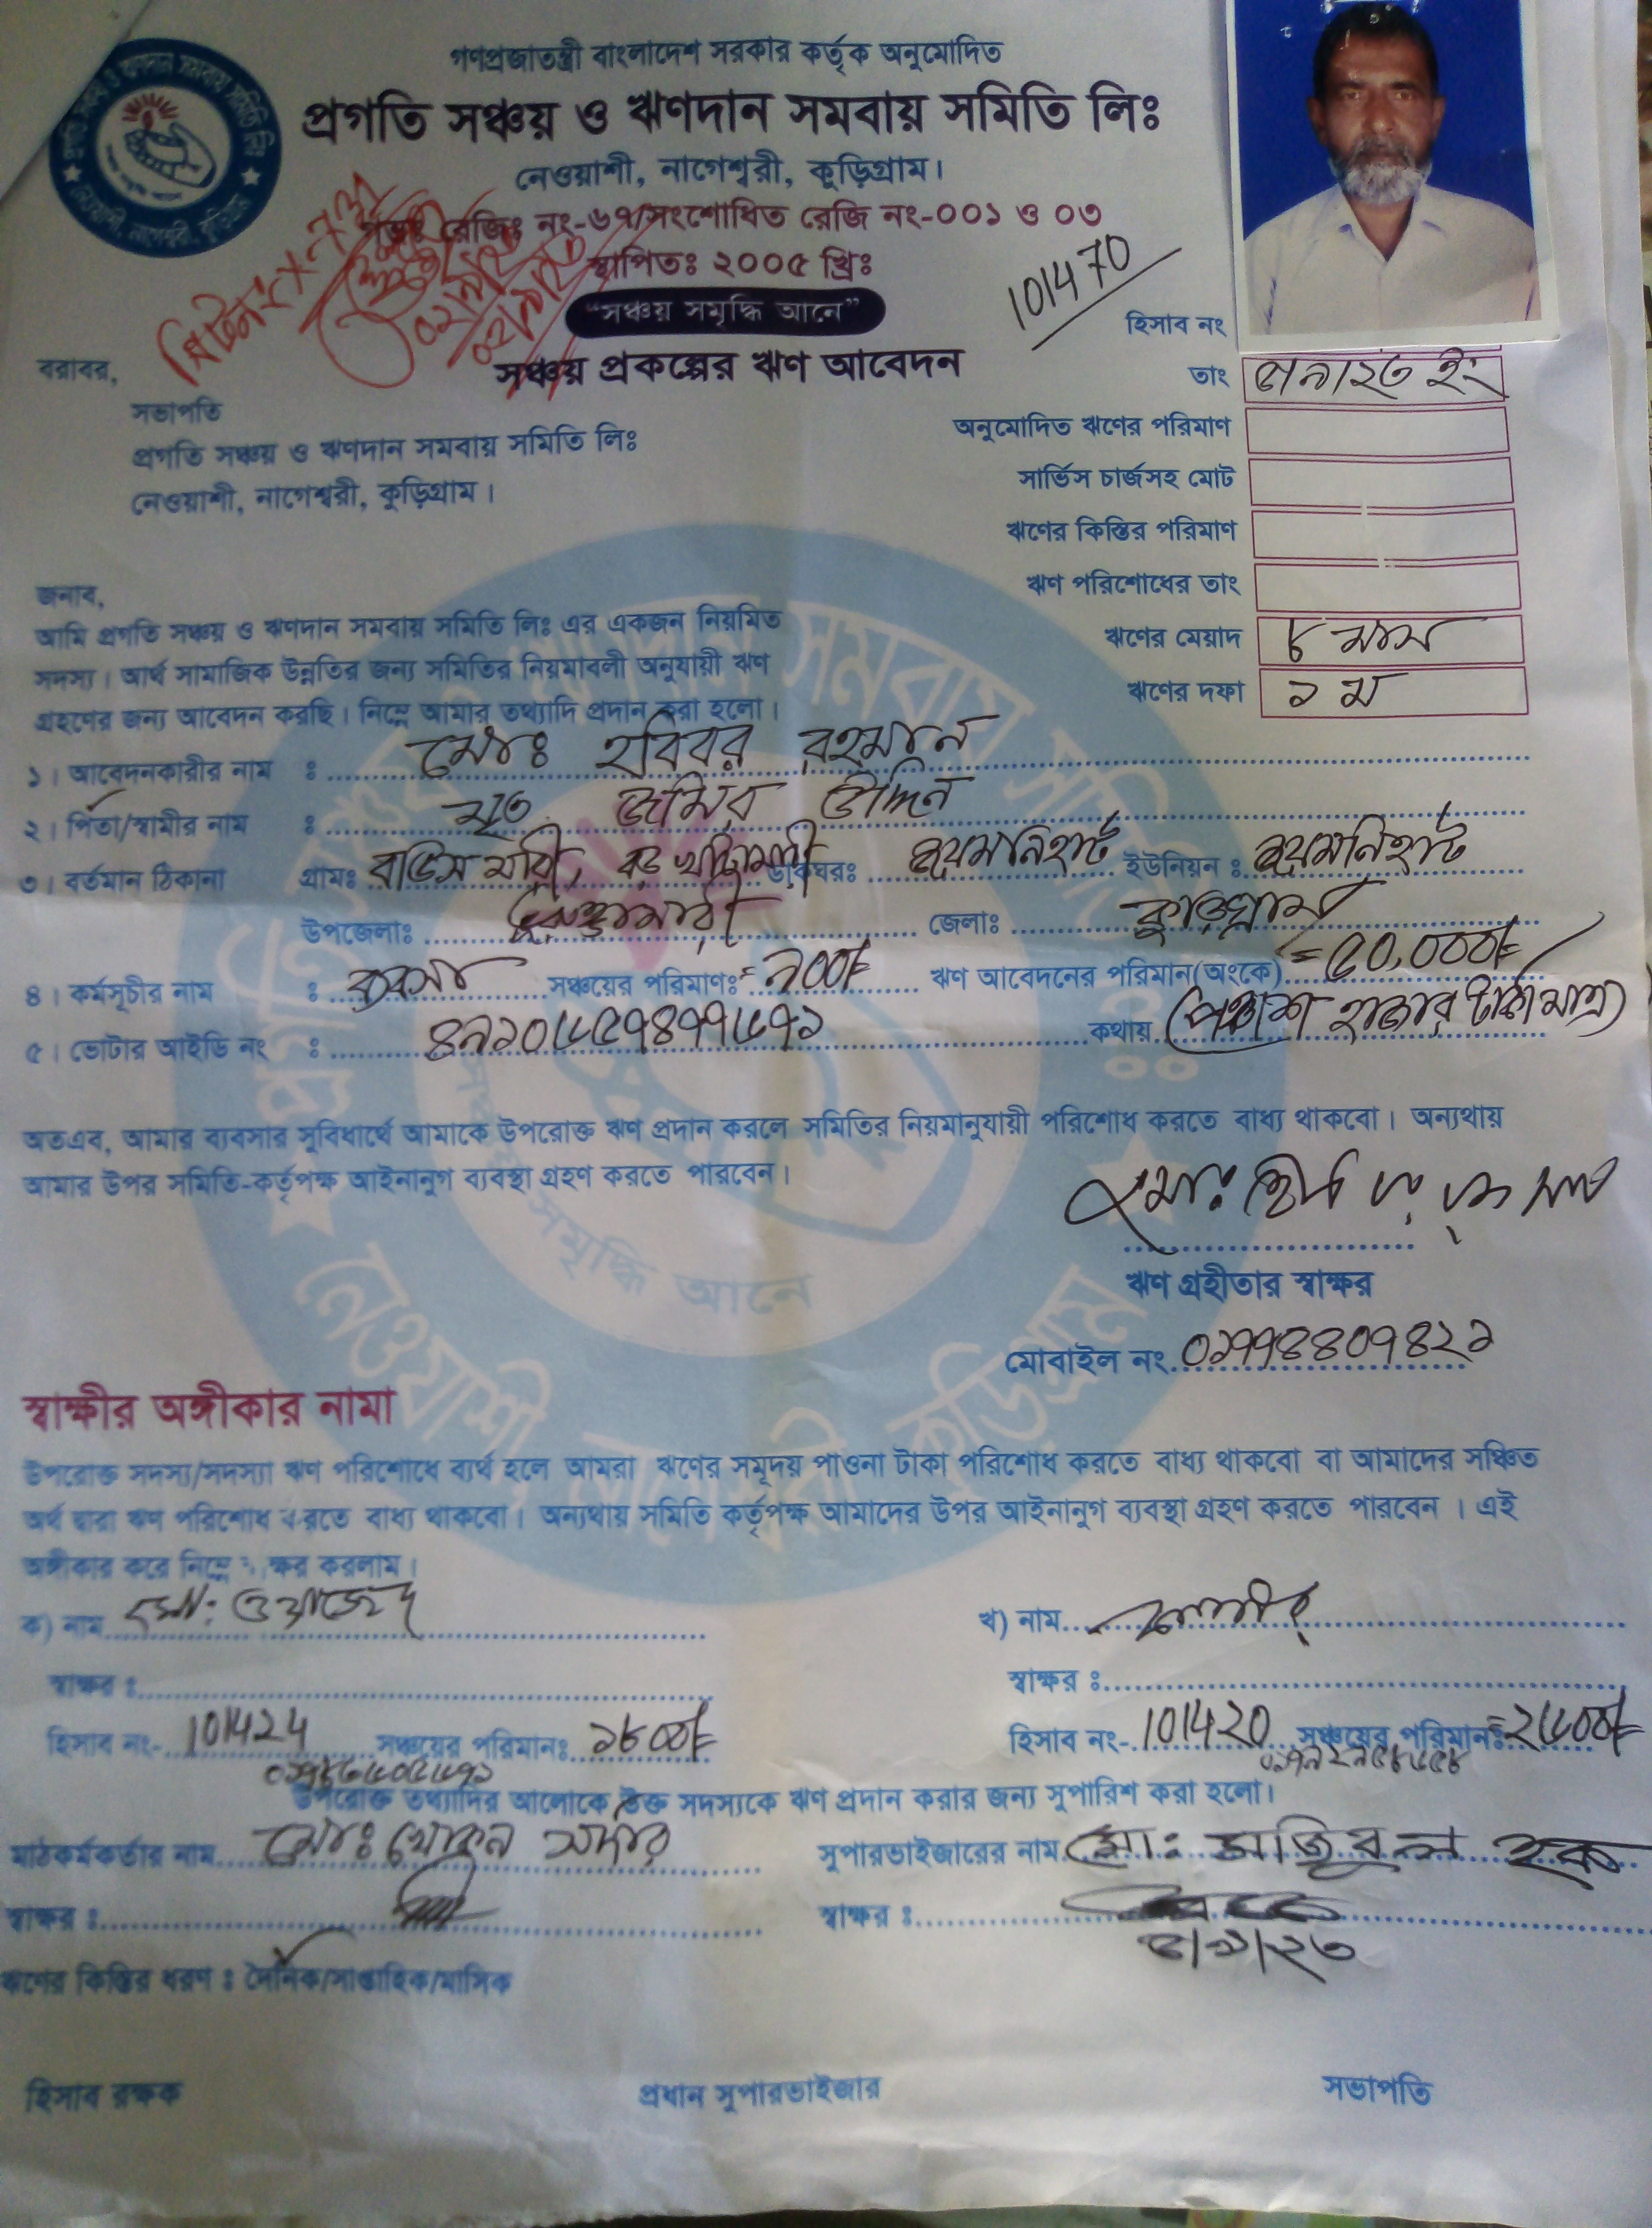 গণপ্রজাতন্ত্রী বাংলাদেশ সরকার কর্তৃক অনুমোদিত
প্রগতি সঞ্চয় ও ঋণদান সমবায় সমিতি লিঃ
নেওয়াশী, নাগেশ্বরী, কুড়িগ্রাম।
রেজিঃ নং-৬৭/সংশোধিত রেজি নং-০০১ ও ০৩
স্থাপিতঃ ২০০৫ খ্রিঃ
"সঞ্চয় সমৃদ্ধি আনে"
101470
হিসাব নং
সঞ্চয় প্রকল্পের ঋণ আবেদন
তাং
বরাবর,
সভাপতি
প্রগতি সঞ্চয় ও ঋণদান সমবায় সমিতি লিঃ
নেওয়াশী, নাগেশ্বরী, কুড়িগ্রাম।
অনুমোদিত ঋণের পরিমাণ
সার্ভিস চার্জসহ মোট
ঋণের কিস্তির পরিমাণ
ঋণ পরিশোধের তাং
ঋণের মেয়াদ ৮ মাস
ঋণের দফা ১ম
জনাব,
আমি প্রগতি সঞ্চয় ও ঋণদান সমবায় সমিতি লিঃ এর একজন নিয়মিত
সদস্য। আর্থ সামাজিক উন্নতির জন্য সমিতির নিয়মাবলী অনুযায়ী ঋণ
গ্রহণের জন্য আবেদন করছি। নিম্নে আমার তথ্যাদি প্রদান করা হলো।
১। আবেদনকারীর নাম : মোঃ হবিবর রহমান
২। পিতা/স্বামীর নাম : মৃত জমির উদ্দিন
৩। বর্তমান ঠিকানা গ্রামঃ ডাকঘরঃ জয়মনিরহাট ইউনিয়ন : জয়মনিরহাট
উপজেলাঃ ভূরুঙ্গামারী জেলাঃ কুড়িগ্রাম
৪। কর্মসূচীর নাম : ব্যবসা সঞ্চয়ের পরিমাণঃ = ৯০০/= ঋণ আবেদনের পরিমান(অংকে) = ৫০,০০০/=
৫। ভোটার আইডি নং : কথায় (পঞ্চাশ হাজার টাকা মাত্র)
অতএব, আমার ব্যবসার সুবিধার্থে আমাকে উপরোক্ত ঋণ প্রদান করলে সমিতির নিয়মানুযায়ী পরিশোধ করতে বাধ্য থাকবো। অন্যথায়
আমার উপর সমিতি-কর্তৃপক্ষ আইনানুগ ব্যবস্থা গ্রহণ করতে পারবেন।
ঋণ গ্রহীতার স্বাক্ষর
মোবাইল নং ০১৭৭৪৪০৭৪২১
স্বাক্ষীর অঙ্গীকার নামা
উপরোক্ত সদস্য/সদস্যা ঋণ পরিশোধে ব্যর্থ হলে আমরা ঋণের সমূদয় পাওনা টাকা পরিশোধ করতে বাধ্য থাকবো বা আমাদের সঞ্চিত
অর্থ দ্বারা ঋণ পরিশোধ করতে বাধ্য থাকবো। অন্যথায় সমিতি কর্তৃপক্ষ আমাদের উপর আইনানুগ ব্যবস্থা গ্রহণ করতে পারবেন । এই
অঙ্গীকার করে নিম্নে স্বাক্ষর করলাম।
ক) নাম মোঃ ওয়াজেদ খ) নাম
স্বাক্ষর : স্বাক্ষর :
হিসাব নং- 101424 সঞ্চয়ের পরিমানঃ ১৮০০/= হিসাব নং- 101420 সঞ্চয়ের পরিমানঃ = ২৬০০/=
উপরোক্ত তথ্যাদির আলোকে উক্ত সদস্যকে ঋণ প্রদান করার জন্য সুপারিশ করা হলো।
মাঠকর্মকর্তার নাম মোঃ খোকন সর্দার সুপারভাইজারের নাম মোঃ হক
স্বাক্ষর : স্বাক্ষর :
ঋণের কিস্তির ধরণ : দৈনিক/সাপ্তাহিক/মাসিক
হিসাব রক্ষক প্রধান সুপারভাইজার সভাপতি